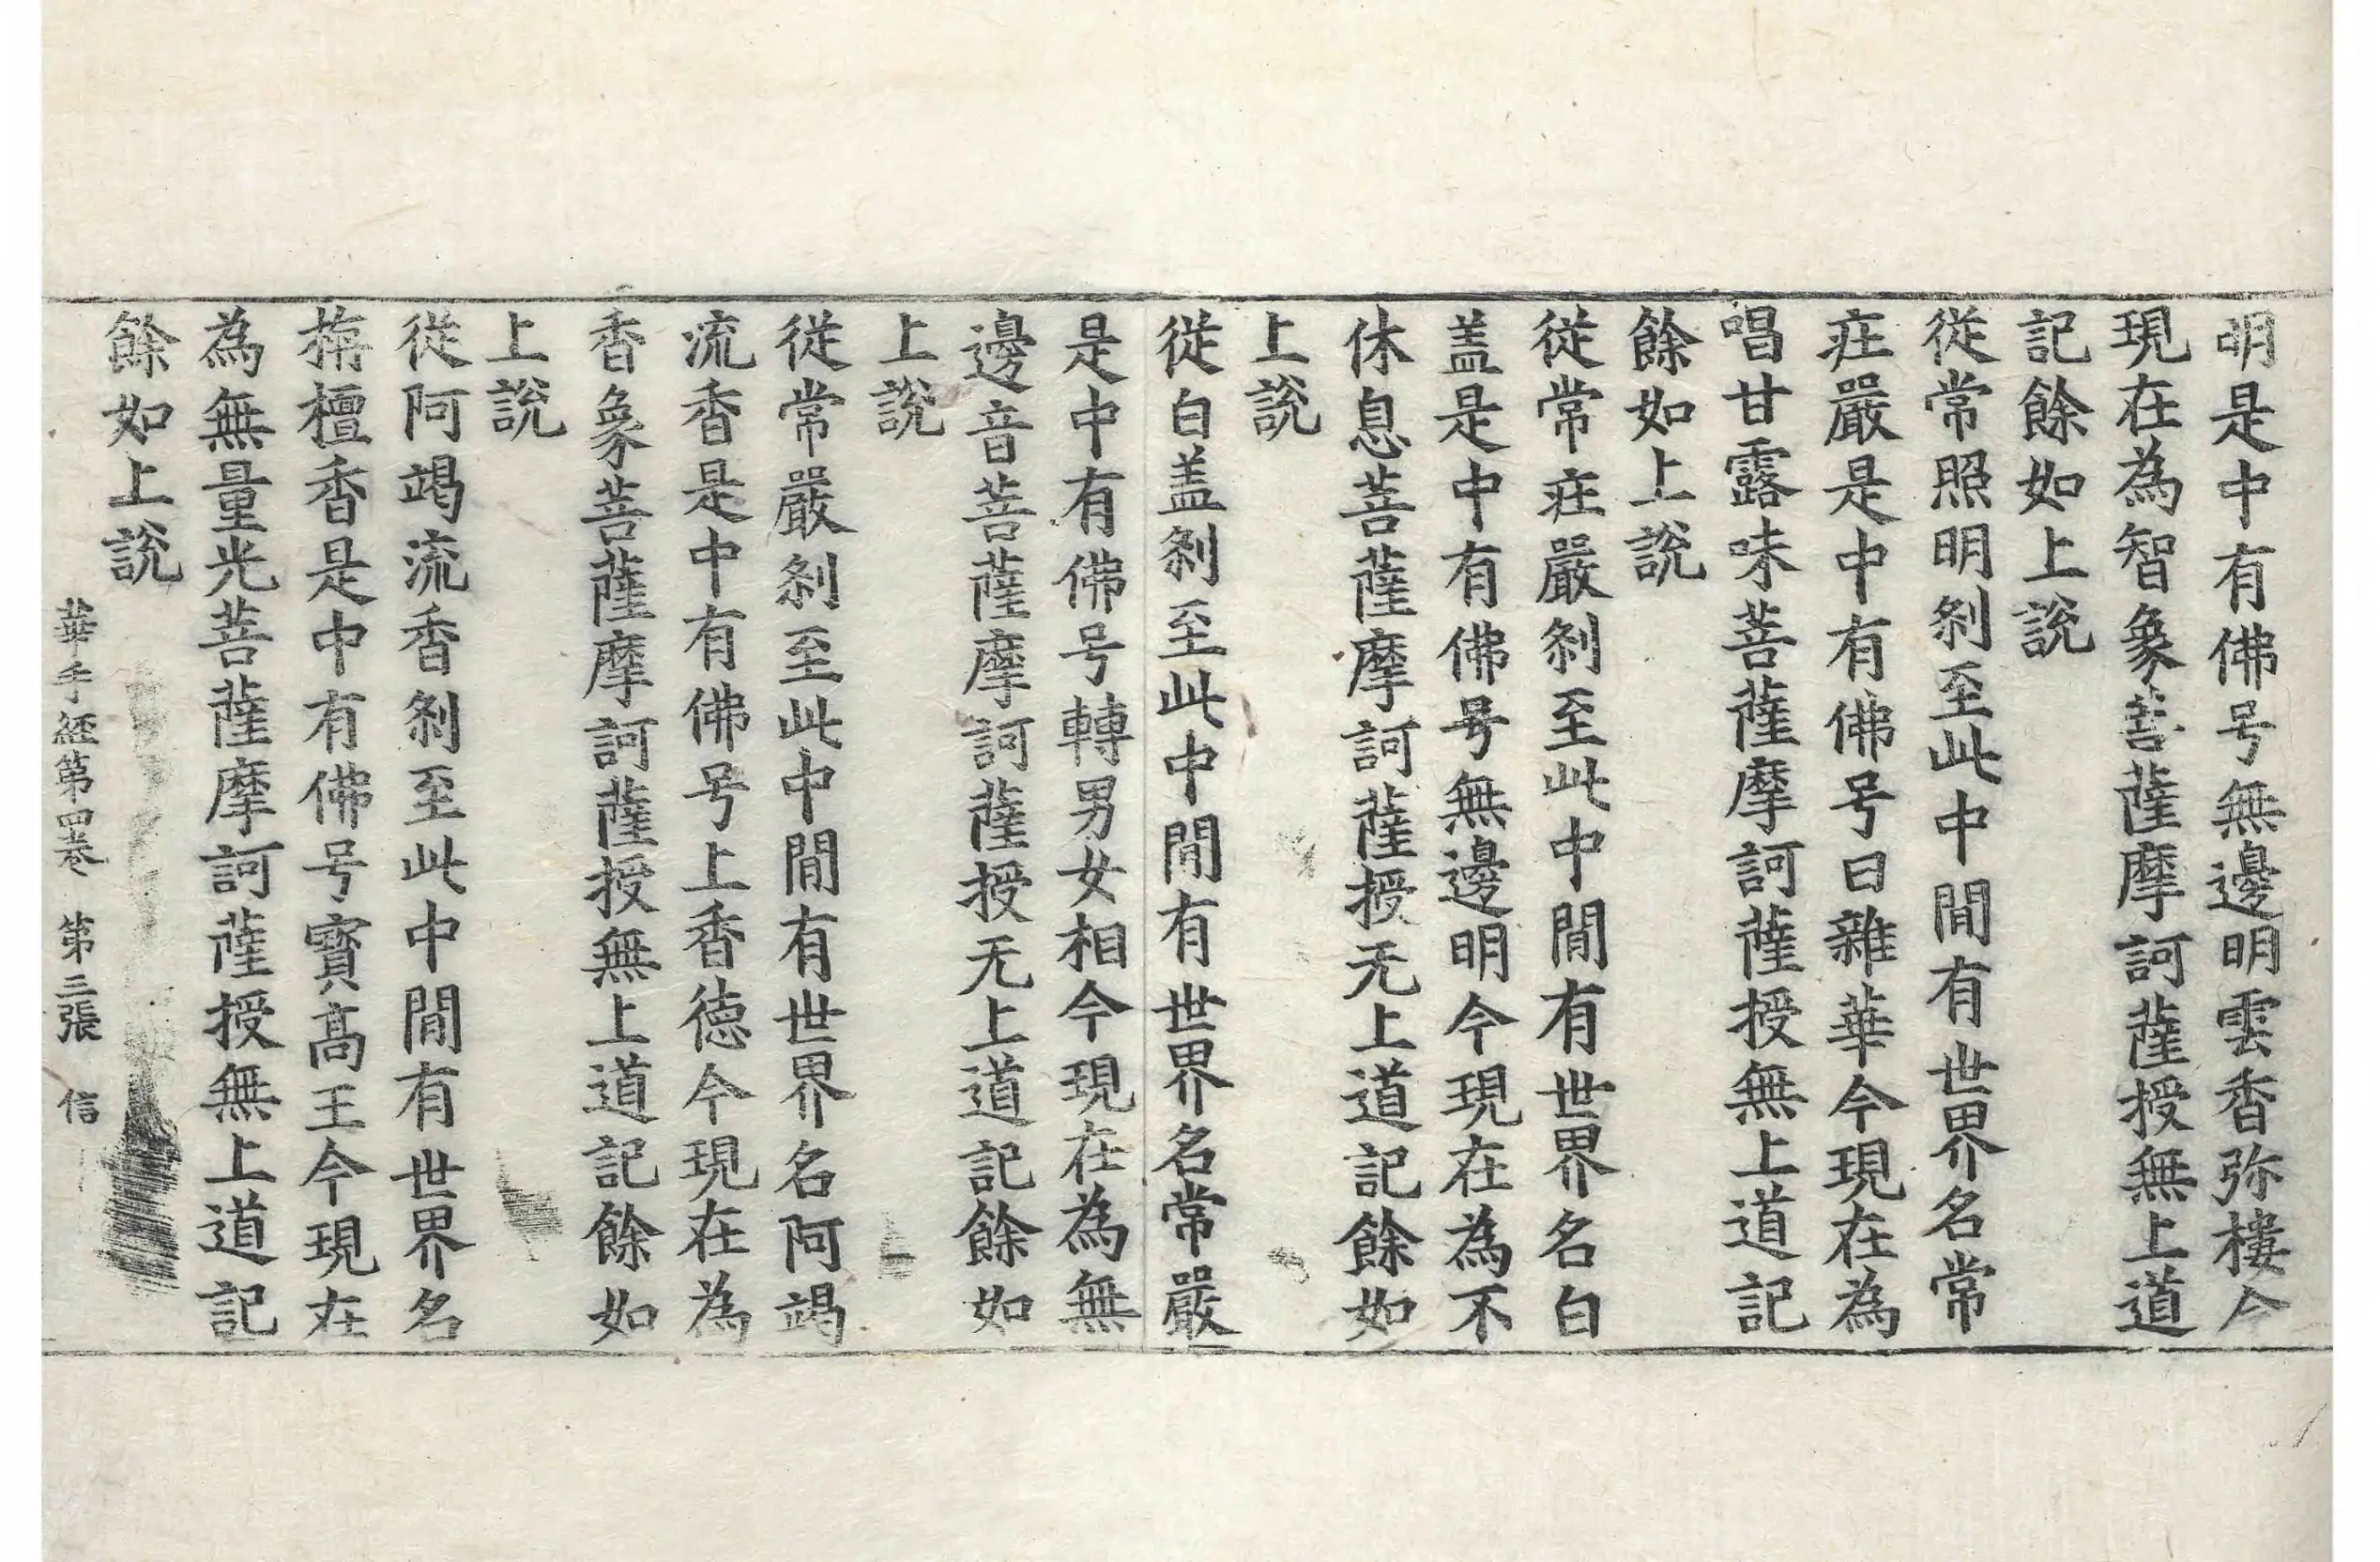 明是中有佛号無邊明雲香弥樓今
現在為智象菩薩摩訶薩授無上道
記餘如上說
從常照明剎至此中間有世界名常
疘嚴是中有佛号曰雜華今現在為
唱甘露味菩薩摩訶薩授無上道記
餘如上說
從常疘嚴剎至此中間有世界名白
盖是中有佛号無邊明今現在為不
休息菩薩摩訶薩授无上道記餘如
上說
從白盖剎至此中間有世界名常嚴
是中有佛号轉男女相今現在為無
邊音菩薩摩訶薩授无上道記餘如
上說
從常嚴剎至此中間有世界名阿竭
流香是中有佛号上香德今現在為
香象菩薩摩訶薩授無上道記餘如
上說
從阿竭流香剎至此中間有世界名
栴檀香是中有佛号寶高王今現在
為無量光菩薩摩訶薩授無上道記
餘如上說
華手經第四卷 第三張 信